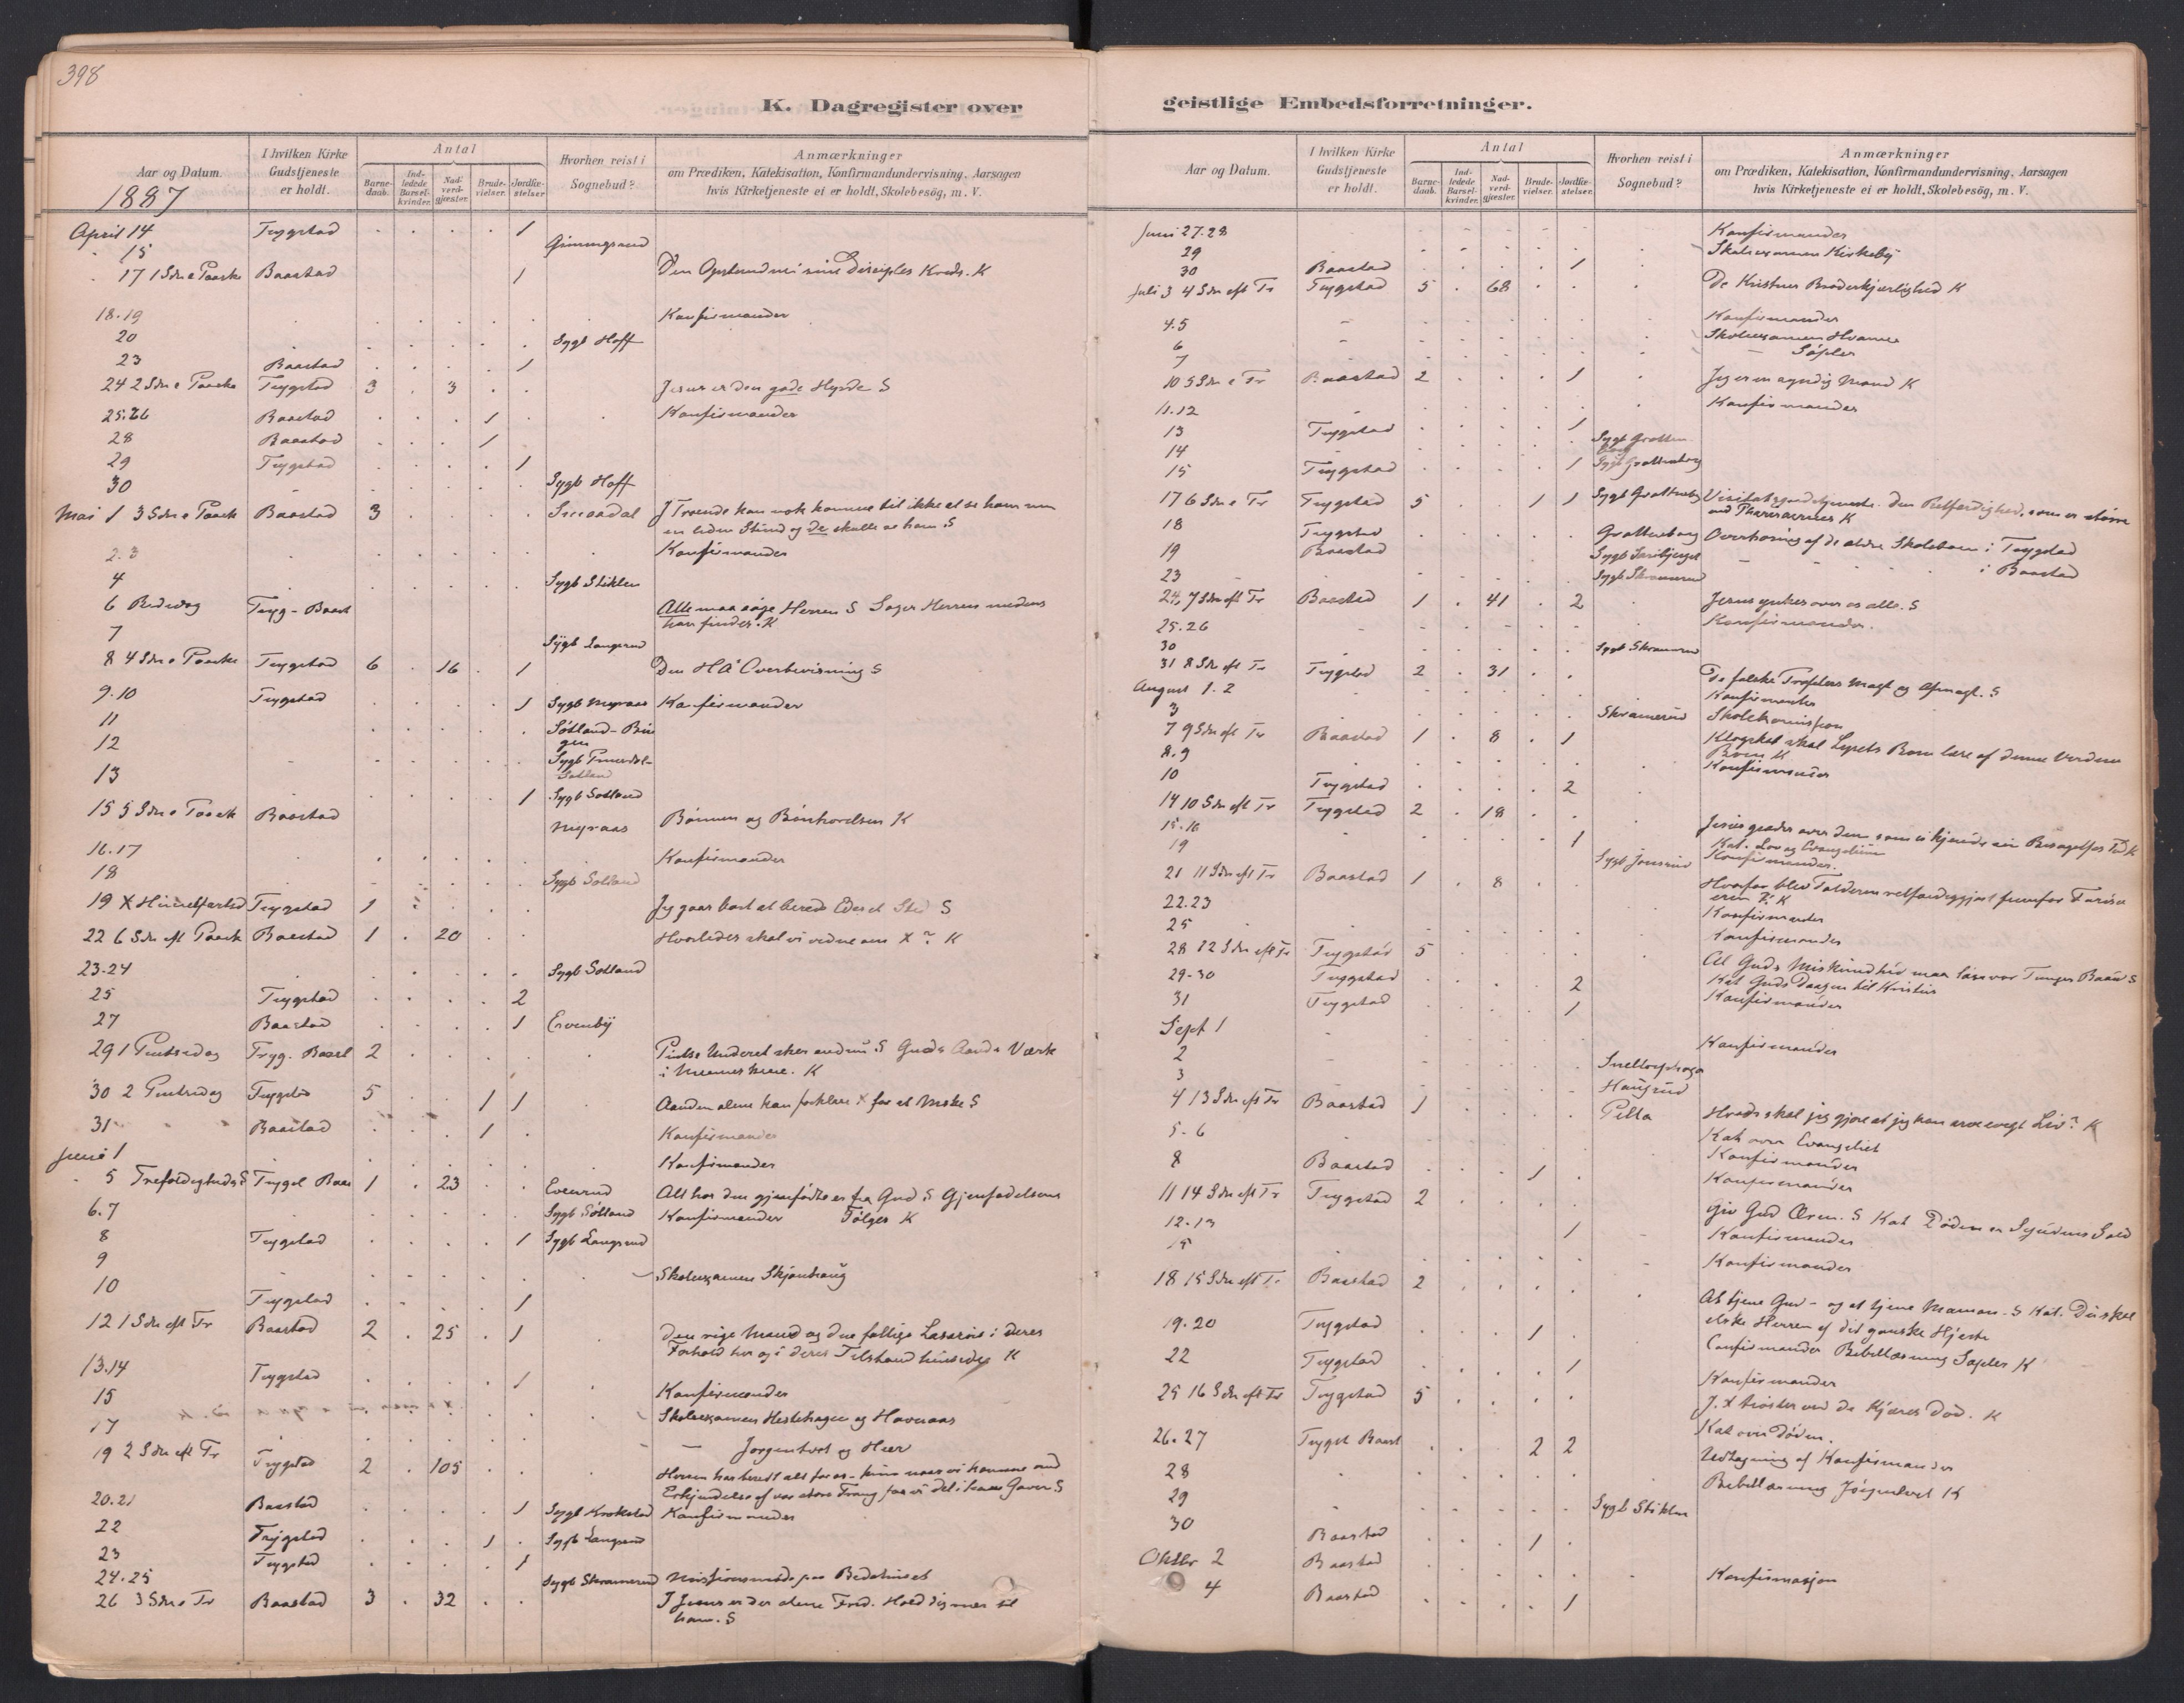 398
K. Dagregister over
Aar og Datum.
I hvilken Kirke Gudstjeneste er holdt.
Antal
Barnedaab.
Indledede Barselkvinder.
Nadverdgjæster.
Brudevielser.
Jordfæstelser.
Hvorhen reist i Sognebud?
Anmærkninger
om Prædiken, Katekisation, Konfirmandundervisning, Aarsagen
hvis Kirketjeneste ei er holdt, Skolebesög, m. V.
1887
April 14 Trygstad . . . . 1
" 15 Gimmingsrud
" 17 1 Sdn e Paaske Baastad 1 Den Opstandne i sine Disciples Kreds. K
18.19 . . . . . . Konfirmander
20 . . . . . Sygb Hoff
23 Baastad . . . . 1
24 2 Sdn e Paaske Trygstad 3 . 3 . . Jesus er den gode Hyrde S
25.26 Baastad . . . 1 . Konfirmander
28 Baastad . . . 1
29 Trygstad . . . . 1
30 . . . . . Sygb Hoff
Mai 1 3 Sdn e Paask Baastad 3 . . . . Smaadal J Troende kan nok komme til ikke at se ham um
en liden Stund og de skulle se ham S
2.3 . . . . . . Konfirmander
4 . . . . . Sygb Stiklen
6 Bededag Tryg-Baast Alle maa søge Herren S Søger Herren medens
han findes. K
7 Sygb Langsrud
8 4 Sdn e Paaske Trygstad 6 . 16 . 1 Den H A Overbevisning S
9.10 Trygstad . . . . 1 Sygb Myraas Konfirmander
11 . . . . . Søtland-Bin
gen
12 . . . . . Sygb
Sotland
13 . . . . 1 Sygb Sotland
15 5 Sdn e Paask Baastad Myraas Bønnen og Bønhørelsen K
16.17 . . . . . Konfirmander
18 . . . . . Sygb Sotland
19 X Himmelfartsd Trygstad 1 . . . . Jeg gaar bort at berede Eder et Sted S
22 6 Sdn eft Paask Baastad 1 . 20 . . Hvorledes skal vi vidne om X? K
23-24 . . . . . Sygb Sotland
25 Trygstad . . . . 2
27 Baastad . . . . 1 Ersvenby
29 1 Pintsedag Tryg. Baast 2 . . . . Pintse Underet sker endnu S Guds Aands Værk
i Menneskene. K
30 2 Pintsedag Trygstad 5 . . 1 1 Aanden alene kan forklare X for at Neske S
31 " " Baastad . . . 1 . Konfirmander
Juni 1 . . . . . Konfirmander
5 Trefoldigheds S Trygst Baas 1 . 23 . . Evensrud Alt hos den gjenfødte er fra Gud S Gjenfødelsens
6.7 . . . . . Sygb Sotland Konfirmander Følger K
8 Trygstad . . . . 1 Sygb Langsrud
9 . . . . . Skolexamen Skjønhaug
10 Trygstad . . . . 1
12 1 Sdn eft Tr Baastad 2 . 25 . 1 Den rige Mand og den fattige Lasarus i deres
Forhold her og i deres Tilstand hinsides K
13.14 Trygstad . . . . 1
15 Konfirmander
17 . . . . . Skolexamen Hestehagen og Havnaas
19 2 Sdn eft Tr Trygstad 2 . 105 . . — Jørgentvet og Hær
Herren har beredt alt for os - kun naar vi komme med
Erkjendelse af vor store Trang faar vi del i hans Gaver S
20.21 Baastad . . . . 1 Sygb Krokstad Konfirmander
22 Trygstad . . . 1 . Sygb Langsrud
23 Trygstad . . . . 1
24.25 Sygb Skramerud Missionsmøde paa Bedehuset
26 3 Sdn e Tr Baastad 3 . 32 . . I Jesus er der alene Fred. Hold dig nær til
ham. S
geistlige Embedsforretninger.
Aar og Datum.
I hvilken Kirke Gudstjeneste er holdt.
Antal
Barnedaab.
Indledede Barselkvinder.
Nadverdgjæster.
Brudevielser.
Jordfæstelser.
Hvorhen reist i Sognebud?
Anmærkninger
om Prædiken, Katekisation, Konfirmandundervisning, Aarsagen
hvis Kirketjeneste ei er holdt, Skolebesög, m. V.
Juni 27.28 - - - - - - Konfirmander
29 - . . . . . Skolexamen Kirkeby
30 Baastad . . . . 1
Juli 3 4 Sdn eft Tr Trygstad 5 . 68 . . . De Kristnes Broderkjærlighed K
4.5 - . . . . . Konfirmander
6 - . . . . . Skolexamen Hvamme
7 . . . . . — Søpler
10 5 Sdn e Tr Baastad 2 . . . 1 Jeg er en syndig Mand K
11.12 . . . . . Konfirmander
13 Trygstad . . . . 1
14 . . . . . Sygb Grotten
berg
15 Trygstad . . . . 1 Sygb Grottenberg
17 6 Sdn e Tr Trygstad 5 . . 1 1 Sygb Grottenberg Visitatsgudstjeneste. Den Retfærdighed, som er større
end Pharisæernes K
18 Trygstad . . . . . Grottenberg Overhøring af de ældre Skolebørn i Trygstad
19 Baastad . . . . . Sygb — " " " i Baastad
23 . . . . . Sygb Skramerud
24, 7 Sdn eft Tr Baastad 1 . 41 . 2 . Jesus ynkes over os alle. S
25.26 - . . . . . Konfirmander.
30 . . . . . Sygb Skramerud
31 8 Sdn eft Tr Trygstad 2 . 31 . . De falske Profeters Magt og Afmagt. S
August 1.2 . . . . . Konfirmander
3 . . . . . Skramerud Skolekommission
7 9 Sdn eft Tr Baastad 1 . 8 . 1 Klogskab skal Lysets Børn lære af denne Verdens
Børn K
8.9 . . . . . Konfirmander
10 Trygstad . . . . 2
14 10 Sdn eft Tr Trygstad 2 . 18 . . Jesus græder over dem som ei kjende sin Besøgelses Tid K
Kat. Lov og Evangelium
15.16 . . . . . Konfirmander.
19 . . . . 1 Sygb Jonsrud
21 11 Sdn eft Tr Baastad 1 . 8 . . Hvorfor blev Tolderen retfærdiggjort fremfor Farisæ
eren?. K
22.23 . . . . . Konfirmander
25 . . . . . Konfirmander
28 12 Sdn eft Tr Trygstad 5 . . . . Al Guds Miskundhed maa løse vor Tunges Baand S
Kat Guds Dragen til Kristus
29-30 Trygstad . . . . 2 Konfirmander
31 Trygstad . . . . 1
Sept 1 . . . . . Konfirmander
2 - . . . . . Sneltorphaga
3 - . . . . . Haugrud
4 13 Sdn eft Tr Baastad 1 . . . . Pilta Hvad skal jeg gjøre at jeg kan arve evigt Liv? K
Kat over Evangeliet
5-6 . . . . . Konfirmander
8 Baastad . . . 1 . Konfirmander
11 14 Sdn eft Tr Trygstad 2 . . . . Giv Gud Æren. S Kat Døden er Syndens Sold
12.13 . . . . 1 Konfirmander
15 . . . . . Konfirmander
18 15 Sdn eft Tr Baastad 2 . . . . At tjene Gud - og at tjene Mamon. S Kat. Du skal
elske Herren af dit ganske Hjerte
19.20 Trygstad . . . 1 . Confirmander Bibellæsning Søpler K
22 Trygstad . . . . 1 Konfirmander
25 16 Sdn eft Tr Trygstad 5 . . . . J. X trøster ved de Kjæres Død. K
Kat over Døden.
26.27 Trygst Baast . . . 2 2 Udtagning af Konfirmander
28 . . . . . Bibellæsning Jørgentvet K
29 . . . . . Sygb Stiklen
30 Baastad . . . 1 .
Oktbr 2 Baastad . . . . . Konfirmasjon
4 Baastad . . . . 1